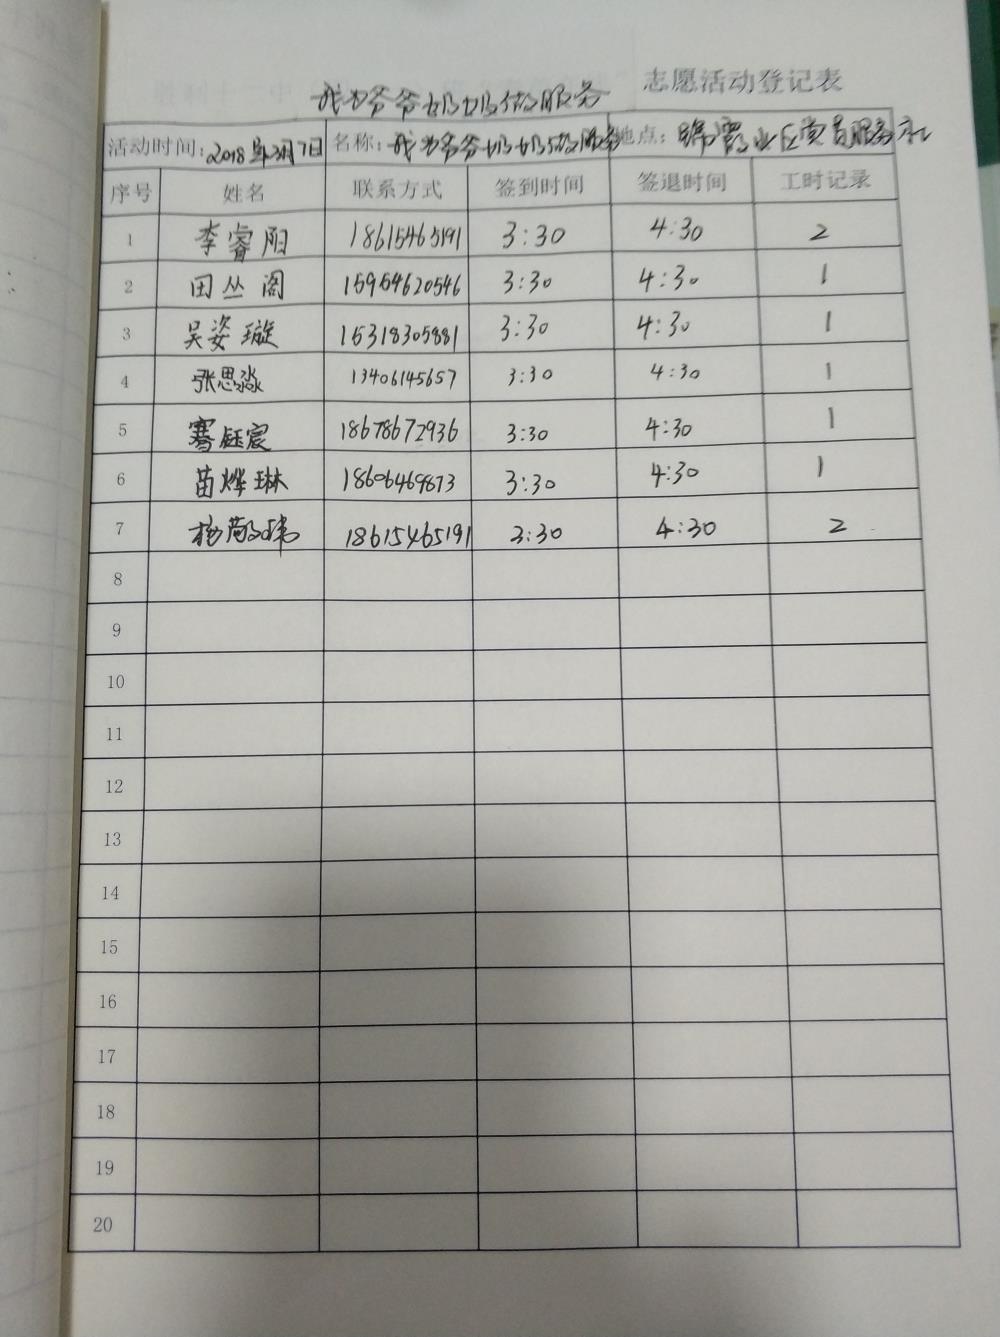 我为爷爷奶奶做服务 志愿活动登记表
活动时间:2018年3月7日 名称:我为爷爷奶奶做服务 地点:党员服务
序号 姓名 联系方式 签到时间 签退时间 工时记录
1 李睿阳 18615465191 3:30 4:30 2
2 田丛阁 15954620546 3:30 4:30 1
3 吴姿璇 15318305881 3:30 4:30 1
4 张思淼 13406145657 3:30 4:30 1
5 骞钰宸 18678672936 3:30 4:30 1
6 苗烨琳 18606469873 3:30 4:30 1
7 杨 18615465191 3:30 4:30 2
8
9
10
11
12
13
14
15
16
17
18
19
20